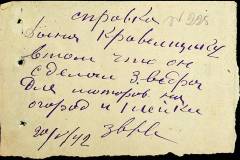 справка № 225
Дана Кравецкому
в том что он
сделал 3 ведра
для моторов на
огород и 1 лейки
20/V/42 Зв